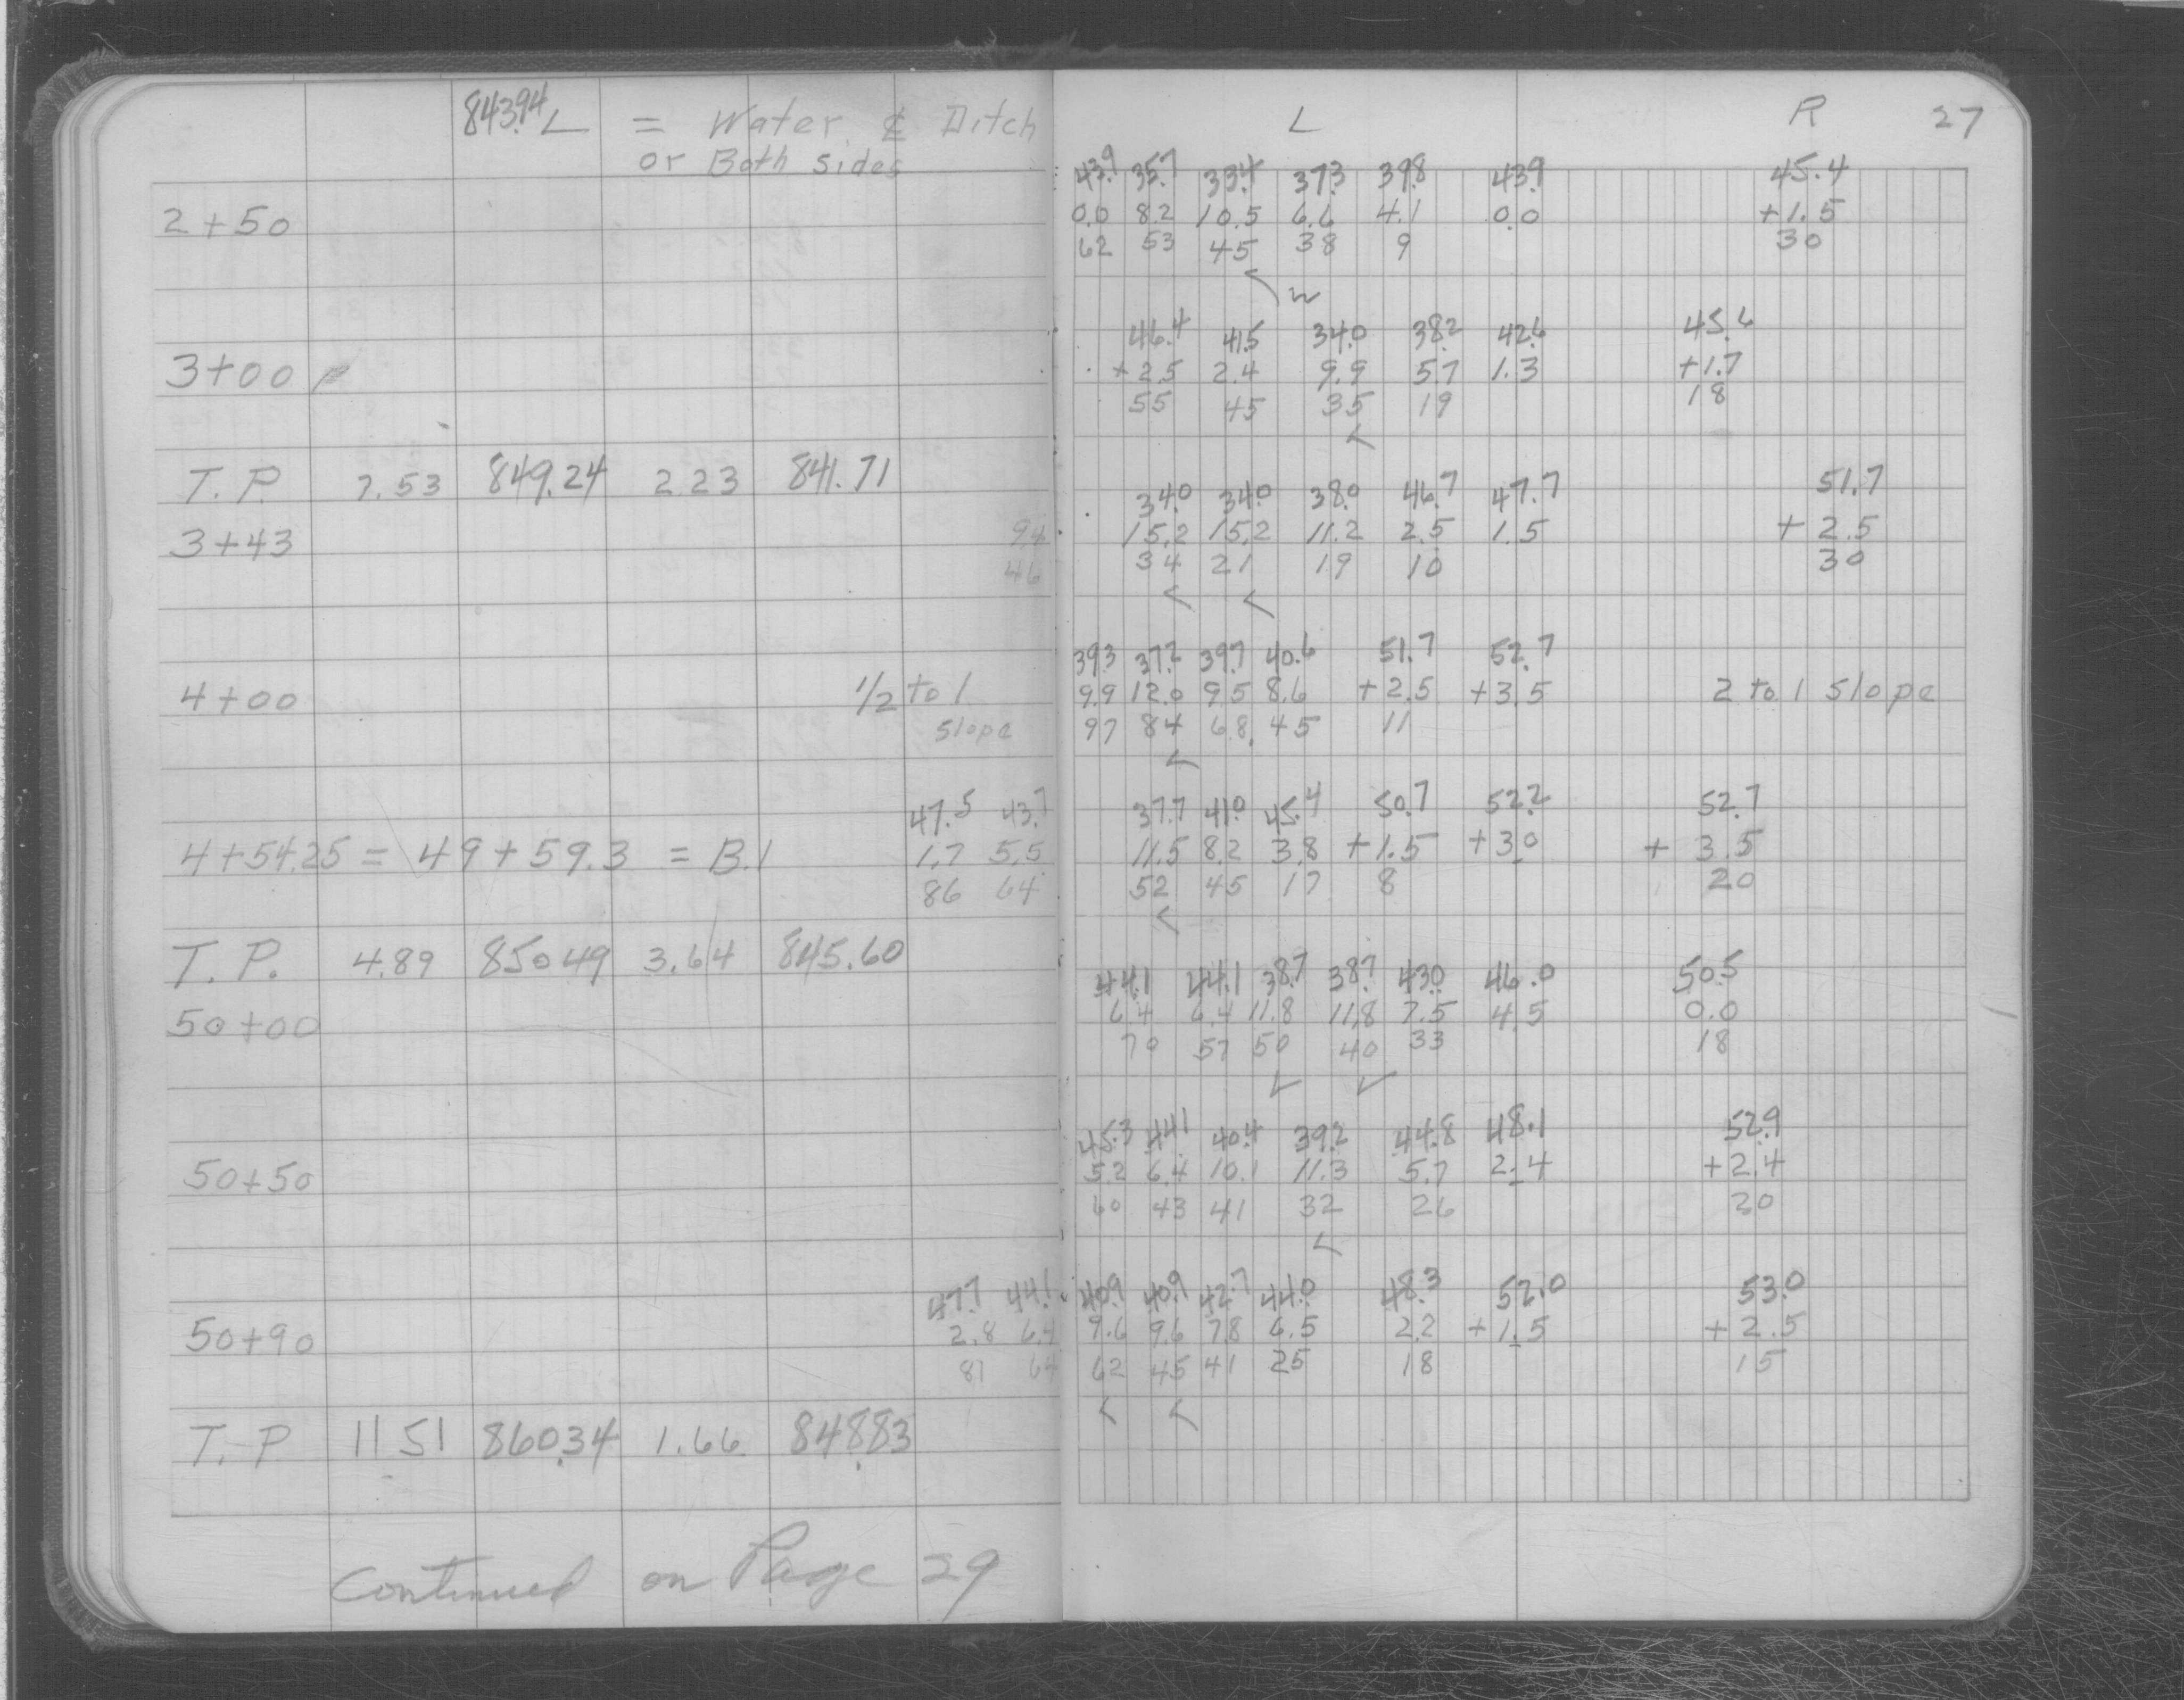 843.94 L = Water ⅊ Ditch L R 27
or Both sides
43.9 35.7 33.4 37.3 39.8 43.9 45.4
2+50 0.0 8.2 10.5 6.6 4.1 0.0 +1.5
62 53 45 38 9 30
< w
46.4 41.5 34.0 38.2 42.6 45.6
3+00 +2.5 2.4 9.9 5.7 1.3 +1.7
55 45 35 19 18
<
T.P. 7.53 849.24 2.23 841.71
34.0 34.0 38.0 46.7 47.7 51.7
3+43 9.4 15.2 15.2 11.2 2.5 1.5 +2.5
46 34 21 19 10 30
< <
39.3 37.2 39.7 40.6 51.7 52.7
4+00 1/2 to 1 9.9 12.0 9.5 8.6 +2.5 +3.5 2 to 1 slope
slope 97 84 68 45 11
<
47.5 43.7 37.7 41.0 45.4 50.7 52.2 52.7
4+54.25 = 49+59.3 = B.1 1.7 5.5 11.5 8.2 3.8 +1.5 +3.0 +3.5
86 64 52 45 17 8 20
<
T.P. 4.89 850.49 3.64 845.60
44.1 44.1 38.7 38.7 43.0 46.0 50.5
50+00 6.4 6.4 11.8 11.8 7.5 4.5 0.0
70 57 50 40 33 18
< <
45.3 44.1 40.4 39.2 44.8 48.1 52.9
50+50 5.2 6.4 10.1 11.3 5.7 2.4 +2.4
60 43 41 32 26 20
<
47.7 44.1 40.9 40.9 42.7 44.0 48.3 52.0 53.0
50+90 2.8 6.4 9.6 9.6 7.8 6.5 2.2 +1.5 +2.5
81 64 62 45 41 25 18 15
< <
T.P. 11.51 860.34 1.66 848.83
Continued on Page 29